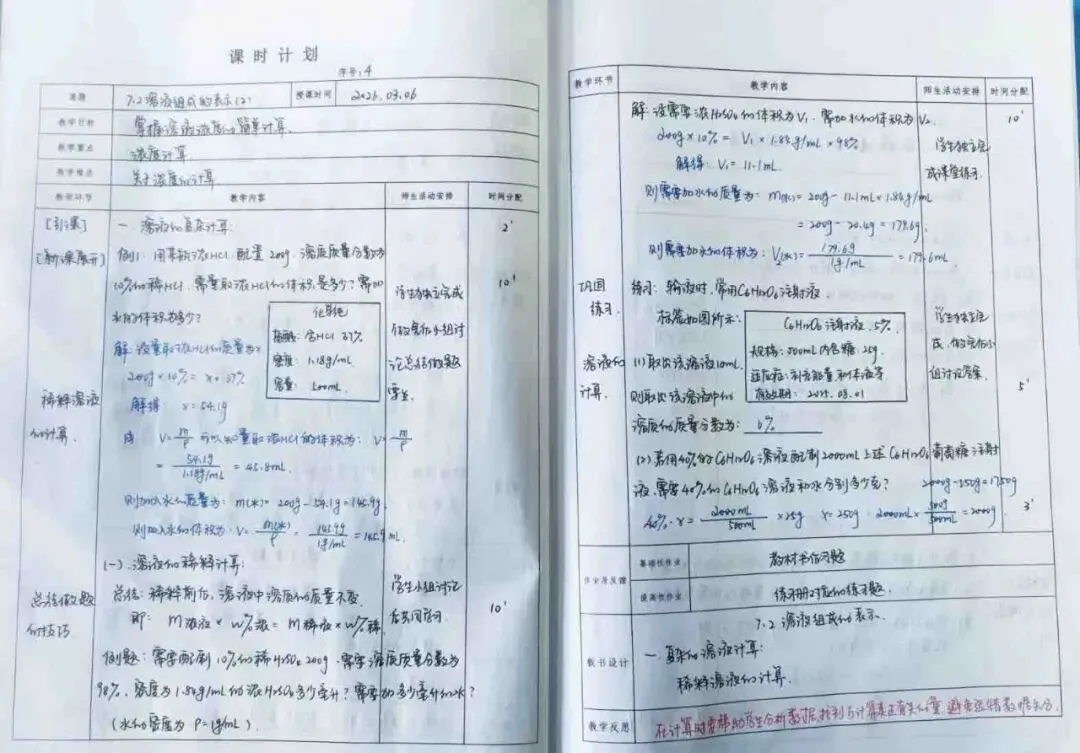 课时计划
序号:4
课题 7.2溶液组成的表示(2) 授课时间 2026.03.06
教学目标 掌握溶液浓度的简单计算.
教学重点 浓度计算.
教学难点 关于浓度的计算
教学环节 教学内容 师生活动安排 时间分配
[引课] 一. 溶液的复杂计算. 2'
[新课展开] 例1: 用某敦浓HCl 配置 200g. 溶质质量分数为
10%的稀HCl. 需量取浓HCl的体积是多少? 需加 10'
水的体积为多少?
学生独立完成
做完后小组讨
论总结做题
化学纯
盐酸: 含HCl 37%
密度: 1.18g/mL
容量: 500mL
解: 设量取浓HCl的质量为x
200g×10% = x·37%
解得 x=54.1g
稀释溶液
的计算.
由 V=m/ρ 可以知量取浓HCl的体积为: V=m/ρ
= 54.1g/1.18g/mL = 45.8mL.
则加入水的质量为: m(水)= 200g-54.1g=145.9g.
则加入水的体积为. V= m(水)/ρ = 145.9g/1g/mL = 145.9mL.
(一). 溶液的稀释计算:
总结做题
的技巧.
总结: 稀释前后, 溶液中溶质的质量不变.
即: m浓液 × w%浓 = m稀液 × w%稀.
学生小组讨论
后共同学习. 10'
例题: 需要配制10%的稀H2SO4 200g. 需要溶质质量分数为
98%. 密度为1.84g/mL的浓H2SO4多少毫升? 需要加多少毫升的水?
(水的密度为 ρ=1g/mL)
教学环节 教学内容 师生活动安排 时间分配
解: 设需要浓H2SO4的体积为V1. 需加水的体积为V2. 10'
200g×10% = V1×1.84g/mL×98%
解得: V1=11.1mL
学生独立完
成课堂练习.
则需要加水的质量为: m(水)=200g-11.1mL×1.84g/mL
=200g-20.4g=179.6g.
则需要加水的体积为: V2(水)= 179.6g/1g/mL =179.6mL
巩固
练习.
练习: 输液时. 常用C6H12O6注射液
标签如图所示:
C6H12O6注射液. 5%.
规格: 500mL内含糖: 25g.
适应症: 补充能量和体液等
有效期:
学生独立完
成. 做完后小
组讨论答案. 5'
溶液的
计算.
(1)取出该溶液10mL.
则取出该溶液中的
溶质的质量分数为: 5%
(2)若用40%的C6H12O6溶液配制2000mL上述C6H12O6葡萄糖注射
液, 需要40%的C6H12O6溶液和水分别多少克? 2000g-250g=1750g
40%·x= 2000mL/500mL ×25g x=250g. 2000mL× 500g/500mL =2000g. 3'
作业及反馈 基础性作业 教材书后习题
提高性作业 练习册对应的练习题.
板书设计 7.2 溶液组成的表示.
一. 复杂的溶液计算:
稀释溶液的计算.
教学反思 在计算时要帮助学生分析数据, 找到与计算真正有关的量. 避免选错数据失分.